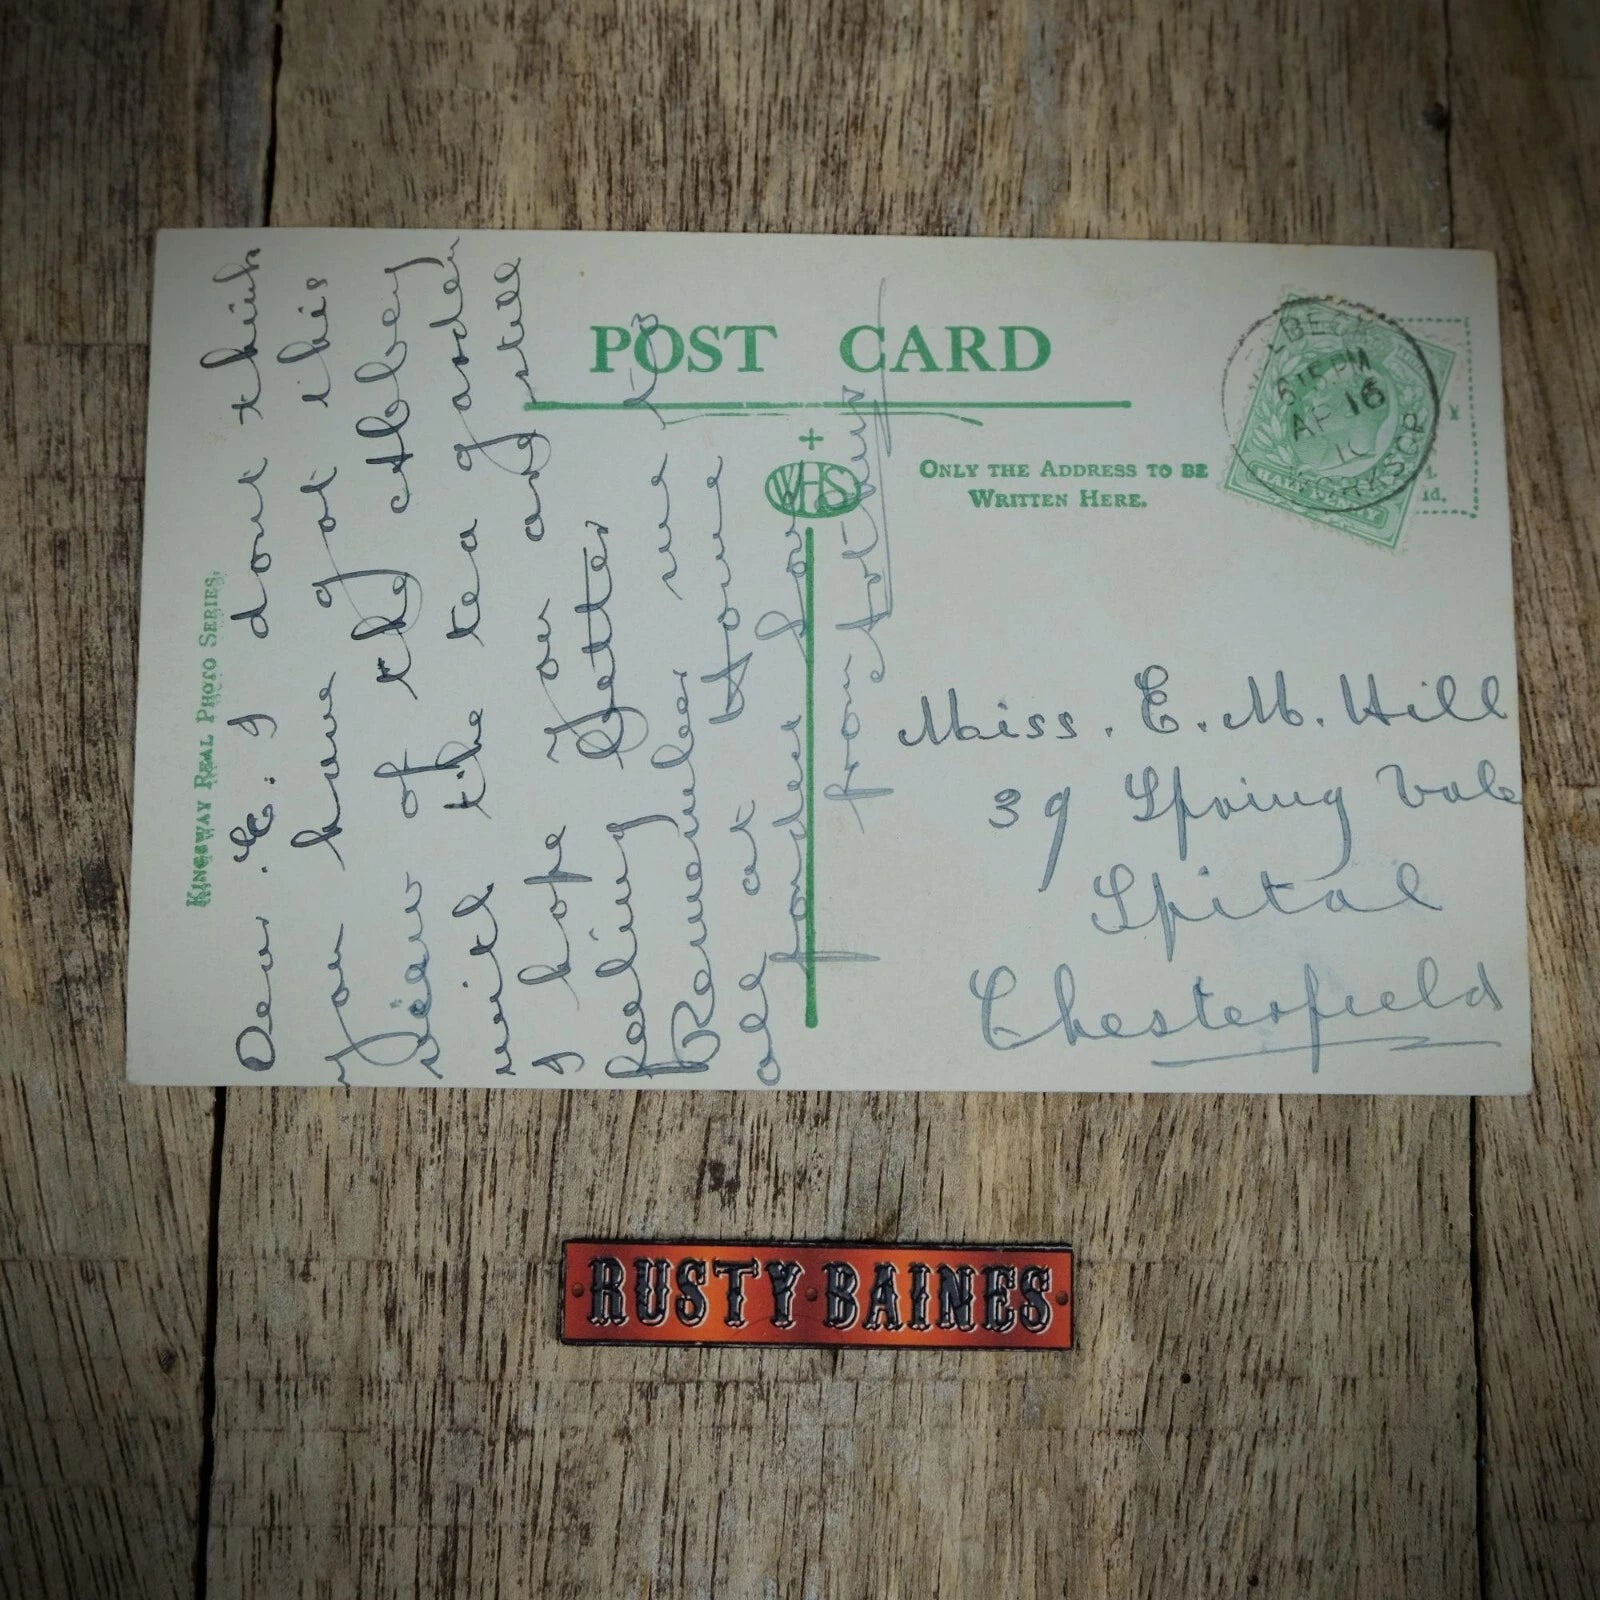 KINGSWAY REAL PHOTO SERIES.
POST CARD
WHS
ONLY THE ADDRESS TO BE
WRITTEN HERE.
LBECK
6 15 PM
AP 16
10
WORKSOP
Dear. E. I dont think
you have got this
view of the Abbey
with the tea garden
I hope you are still
feeling Better
Remember me to
all at Home
fondest Love
from Arthur
Miss. E. M. Hill
39 Spring Vale
Spital
Chesterfield
RUSTY BAINES